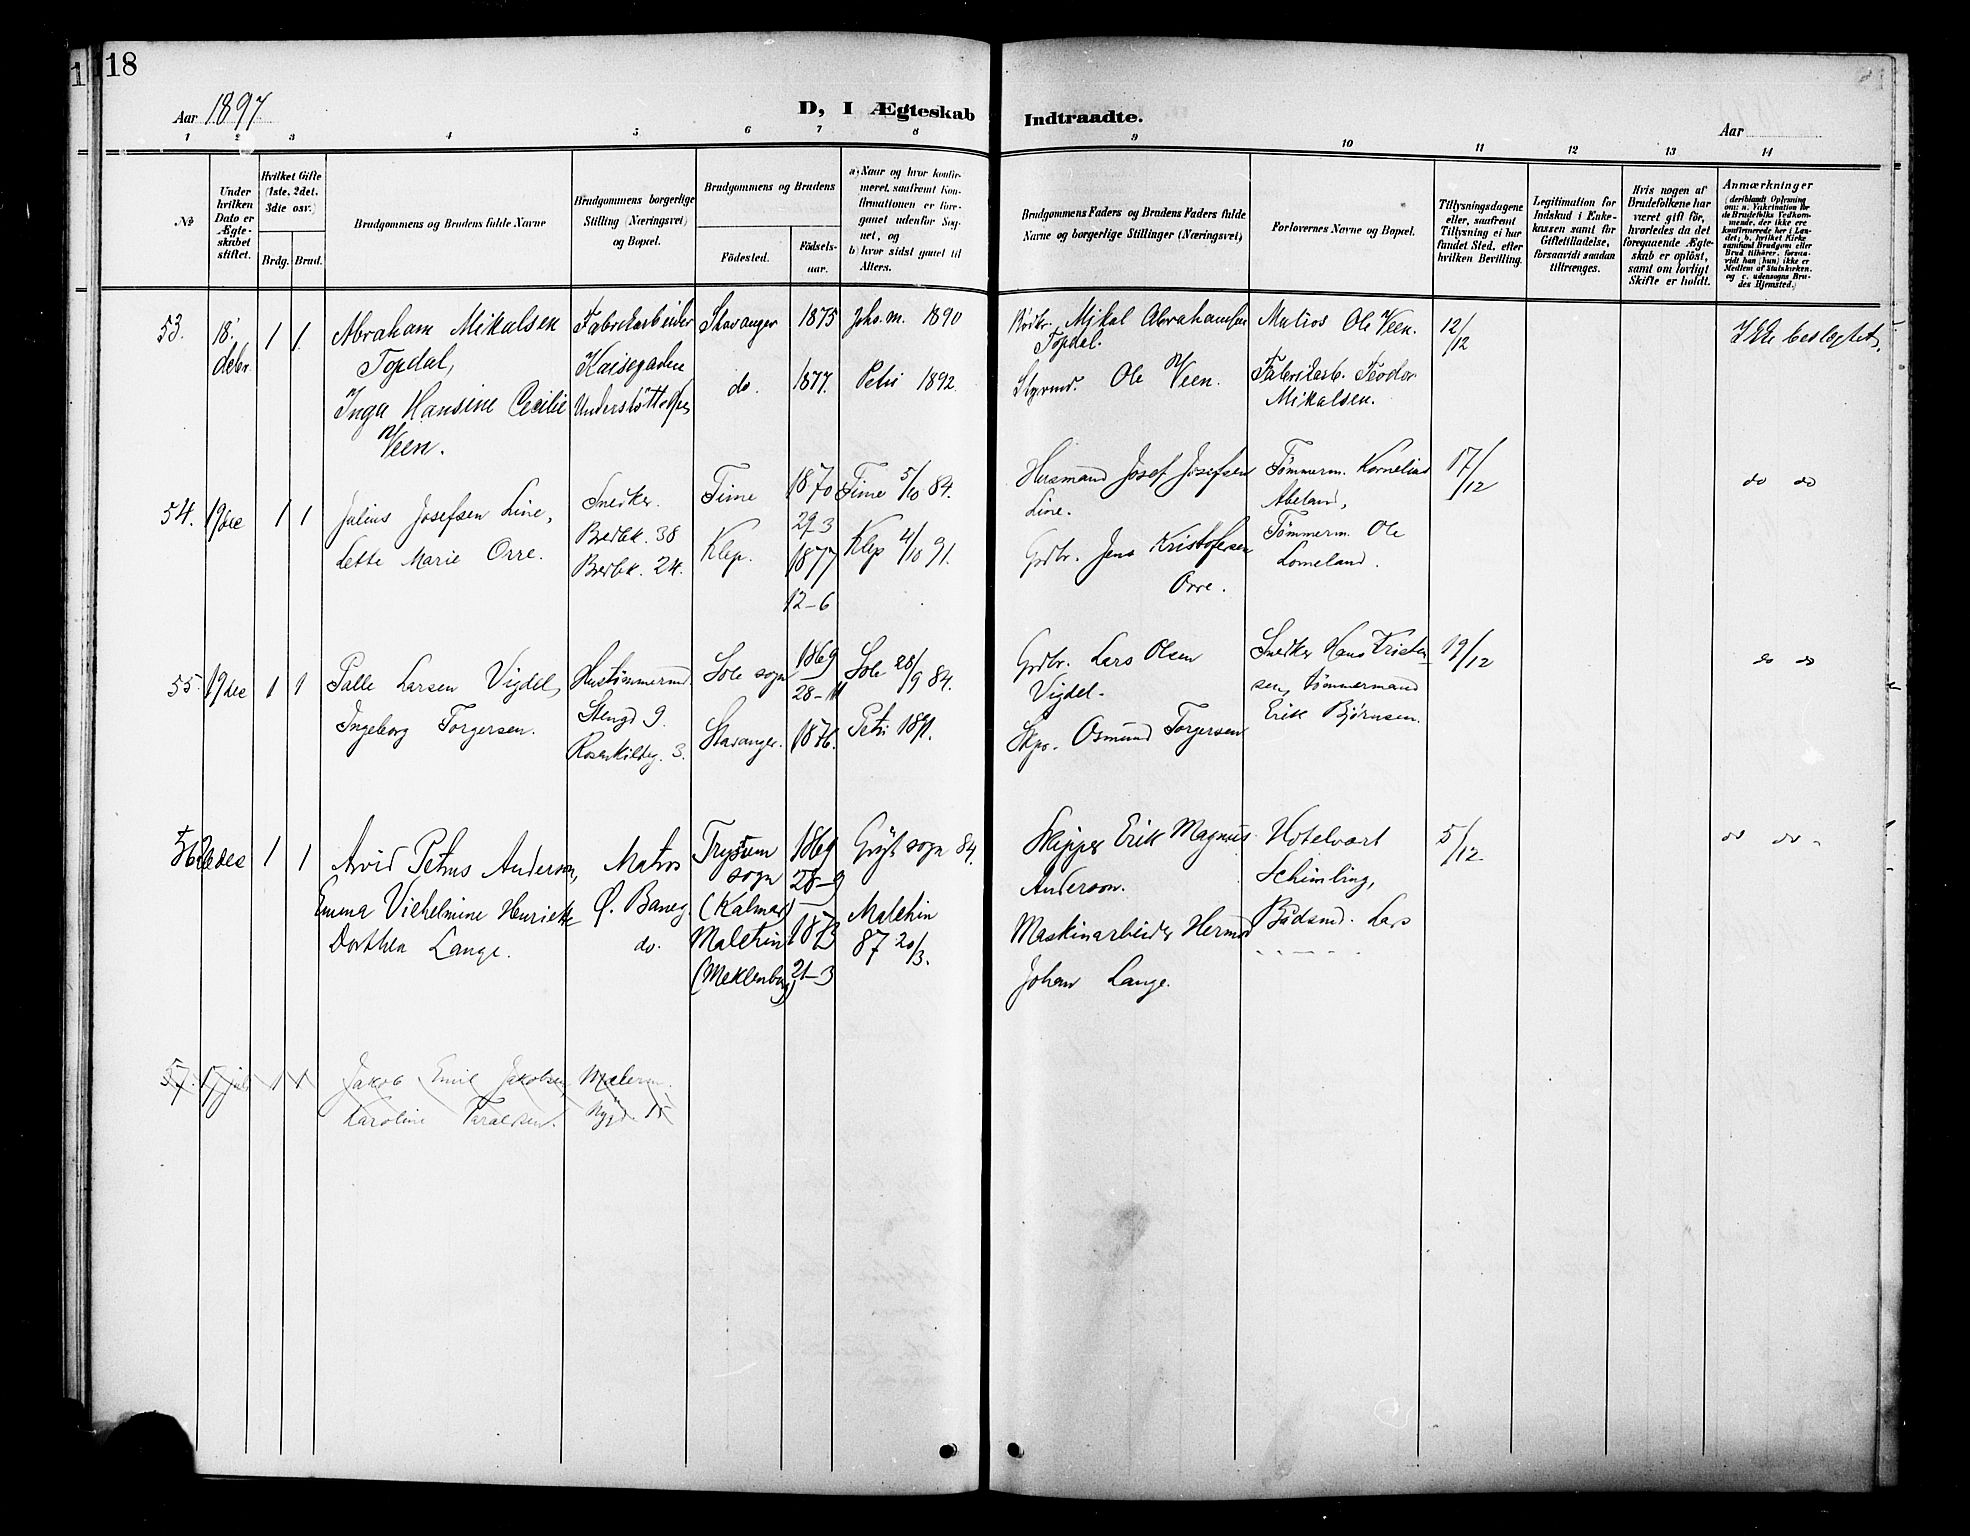 18
Aar 1897.
D, I Ægteskab Indtraadte.
Aar
1 2 3 4 5 6 7 8 9 10 11 12 13 14
No
Under hvilken Dato er Ægteskabet stiftet.
Hvilket Gifte (1ste, 2det, 3die osv.)
Brdg. Brud.
Brudgommens og Brudens fulde Navne
Brudgommens borgerlige Stilling (Næringsvei) og Bopæl.
Brudgommens og Brudens
Födested.
Födselsaar.
a) Naar og hvor konfirmeret, saafremt Konfirmationen er foregaaet udenfor Sognet, og
b) hvor sidst gaaet til Alters.
Brudgommens Faders og Brudens Faders fulde Navne og borgerlige Stillinger (Næringsvei)
Forlovernes Navne og Bopæl.
Tillysningsdagene eller, saafremt Tillysning ei har fundet Sted, efter hvilken Bevilling.
Legitimation for Indskud i Enkekassen samt for Giftetilladelse, forsaavidt saadan tiltrænges.
Hvis nogen af Brudefolkene har været gift för, hvorledes da det foregaaende Ægteskab er oplöst, samt om lovligt Skifte er holdt.
Anmærkninger
53. 18. debr 1 1. Abraham Mikalsen
Topdal,
Inga Hansine Cecilie
Veen.
Fabrikarbeider
Stavanger 1875 Johs.m. 1890
do. 1877. Petri 1892.
Mikal Abrahamsen
Topdal.
Styrmd. Ole Veen.
Matros Ole Veen.
Fabrikarb. Teodor
Mikalsen.
12/12
Ikke beslegtet.
54. 19 dec 1 1 Julius Josefsen Line,
Lette Marie Orre.
Snedker.
Bredbk. 38
Bredbk. 24.
Time 1870 29-3 Time 5/10 84.
Klep. 1877 12-6 Klep 4/10 91.
Husmand Josef Josefsen
Line.
Grdbr. Jens Kristofersen
Orre.
Tømmerm. Kornelius
Abeland,
Tømmerm. Ole
Lomeland.
17/12
do do
55. 19 dec 1 1 Palle Larsen Vigdel,
Ingeborg Torgersen.
Hustømmermd
Stengd 9.
Rosenkildeg. 3.
Sole sogn 1869 28-11 Sole 28/9 84.
Stavanger. 1876. Petri 1891.
Grdbr. Lars Olsen
Vigdel.
Skpr. Osmund Torgersen
Snedker Hans Kristensen, Tømmermand
Erik Bjørnsen.
19/12
do do
56. dec 1 1 Arvid Petrus Anderson,
Emma Vilhelmine Henriette
Dorthea Lange.
Matros
Ø. Baneg.
do.
sogn
(Kalmar)
1869 28-9
sogn 84.
Malchin
(Meklenburg)
1873 21-3
Malchin
87 20/3.
Skipper Erik Magnus
Anderson.
Maskinarbeider Herman
Johan Lange.
Hotelvært
Schimling,
Bødsmd. Lars
5/12.
do do
57. 17 jul 1 1 Jakob Emil Jakobsen
Karoline Taraldsen.
Malerm.